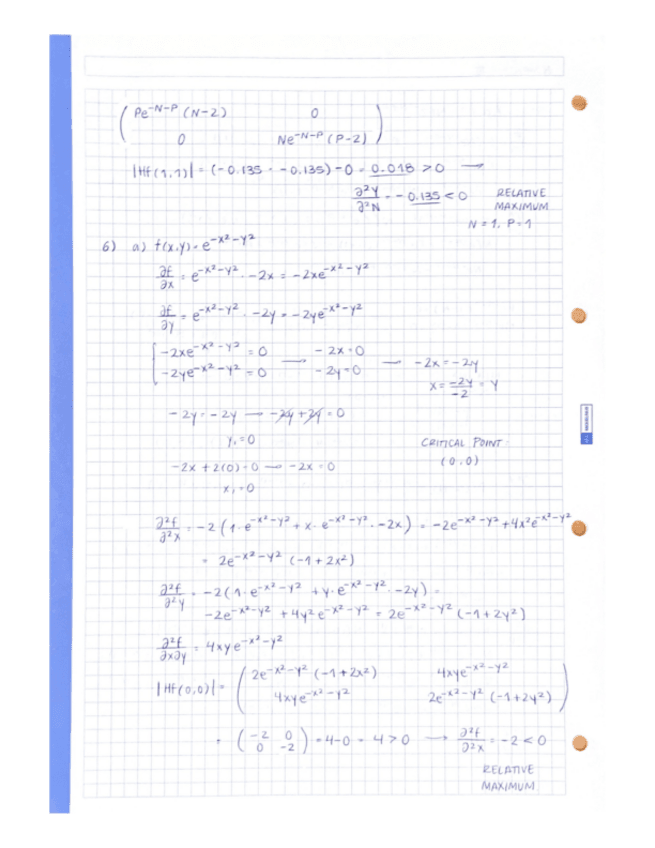 ( Pe^-N-P (N-2)   0 )
( 0   Ne^-N-P (P-2) )
|Hf(1,1)| = (-0.135 · -0.135) - 0 = 0.018 > 0 →
∂²Y/∂²N = -0.135 < 0   RELATIVE
MAXIMUM
N = 1, P = 1
6) a) f(x,y) = e^-x²-y²
∂f/∂x = e^-x²-y² · -2x = -2xe^-x²-y²
∂f/∂y = e^-x²-y² · -2y = -2ye^-x²-y²
-2xe^-x²-y² = 0 → -2x=0 → -2x = -2y
-2ye^-x²-y² = 0   -2y=0   x = -2y/-2 = y
-2y = -2y → -2y + 2y = 0
y₁=0   CRITICAL POINT:
(0,0)
-2x + 2(0) = 0 → -2x = 0
x₁=0
∂²f/∂²x = -2 (1·e^-x²-y² + x·e^-x²-y² · -2x) = -2e^-x²-y² + 4x²e^-x²-y²
= 2e^-x²-y² (-1+2x²)
∂²f/∂²y = -2(1·e^-x²-y² + y·e^-x²-y² · -2y) =
-2e^-x²-y² + 4y²e^-x²-y² = 2e^-x²-y² (-1+2y²)
∂²f/∂x∂y = 4xye^-x²-y²
|Hf(0,0)| = ( 2e^-x²-y² (-1+2x²)   4xye^-x²-y² )
( 4xye^-x²-y²   2e^-x²-y² (-1+2y²) )
= ( -2 0 / 0 -2 ) = 4-0 = 4 > 0 → ∂²f/∂²x = -2 < 0
RELATIVE
MAXIMUM